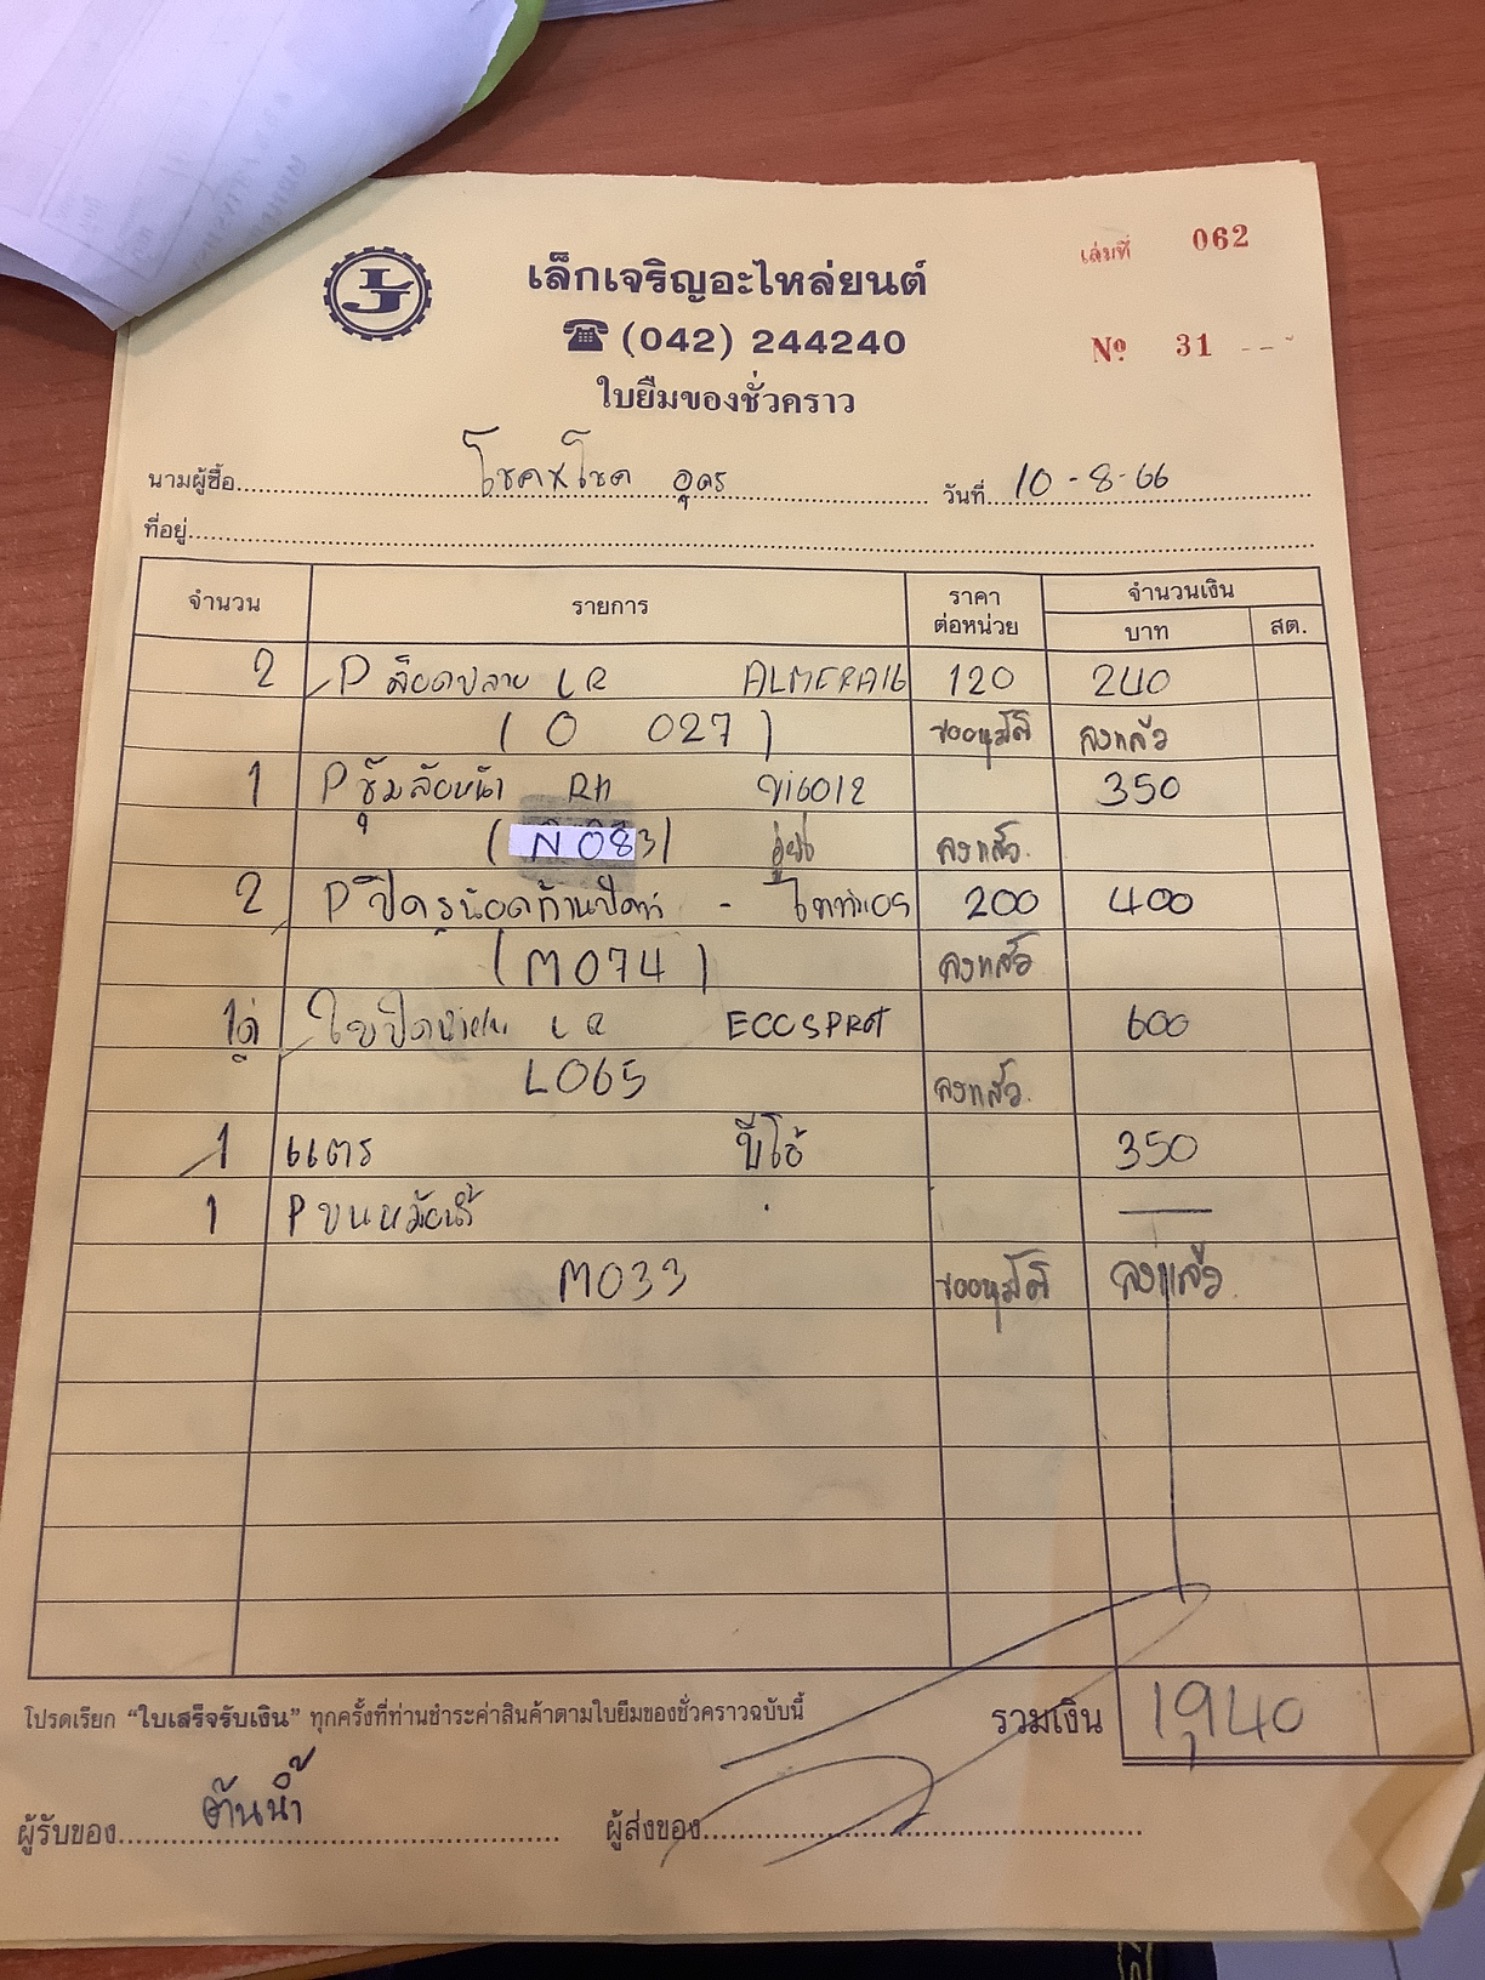 เล่มที่ 062
เล็กเจริญอะไหล่ยนต์
(042) 244240
Nº 31
ใบยืมของชั่วคราว
นามผู้ซื้อ โชคxโชค อุดร วันที่ 10-8-66
ที่อยู่
จำนวน รายการ ราคาต่อหน่วย จำนวนเงิน
บาท สต.
2 P ล็อคปลาย LR ALMERA16 120 240
(O 027) ขออนุมัติ ลงแล้ว
1 P ซุ้มล้อหน้า RH 350
(N 083) ลงแล้ว.
2 P ปิดรูน้อต 200 400
(M074) ลงแล้ว
1คู่ ใบปิด LR 600
L065 ลงแล้ว.
1 แตร วีโอ้ 350
1 P บนหม้อน้ำ —
M033 ขออนุมัติ ลงแล้ว.
โปรดเรียก “ใบเสร็จรับเงิน” ทุกครั้งที่ท่านชำระค่าสินค้าตามใบยืมของชั่วคราวฉบับนี้ รวมเงิน 1,940
ผู้รับของ ต้นน้ำ ผู้ส่งของ